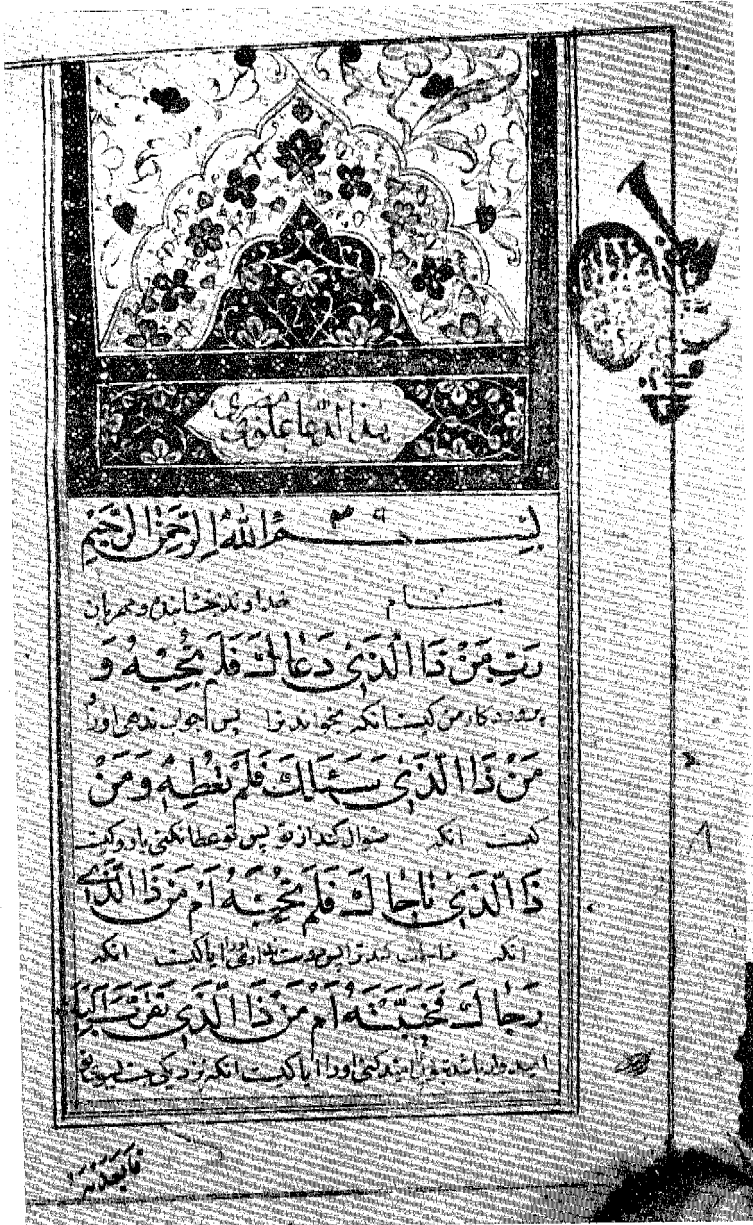 هذا الدعا علوی مصری
بسم الله الرحمن الرحيم
بنام خداوند بخشاینده و مهربان
رَبِّ مَنْ ذَا الَّذی دَعاكَ فَلَمْ تُجِبْهُ وَ
پروردکار من کیست انکه بخواند ترا پس اجواب ندهی اورا
مَنْ ذَا الَّذی سَئَلَكَ فَلَمْ تُعْطِهِ وَ مَنْ
کیست انکه سؤال کند از تو پس تو عطا نکنی باو و کیست
ذَا الَّذی ناجاكَ فَلَمْ تُجِبْهُ اَمْ مَنْ ذَا الَّذی
انکه ترا پس ایا کیست انکه
رَجاكَ فَخَيَّبْتَهُ اَمْ مَنْ ذَا الَّذی تَقَرَّبَ اِلَيْكَ
امیدوار باشد بتو امید کنی اورا ایا کیست انکه نزدیکی جست بسوی تو
فَاَبْعَدْتَهُ